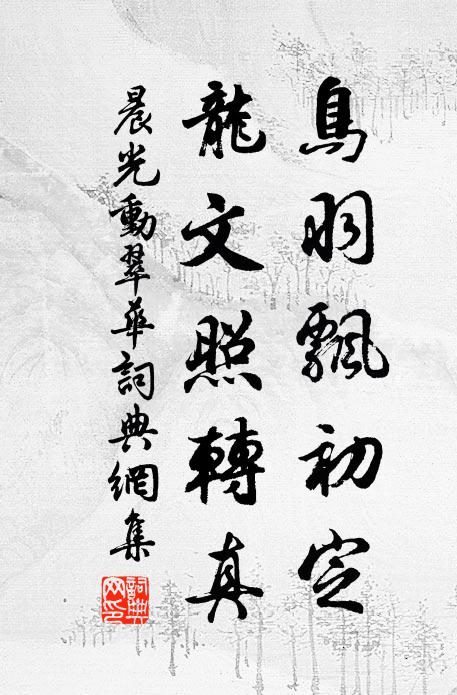 鳥羽飄初定
龍文照轉真
晨光動翠華詞典網集